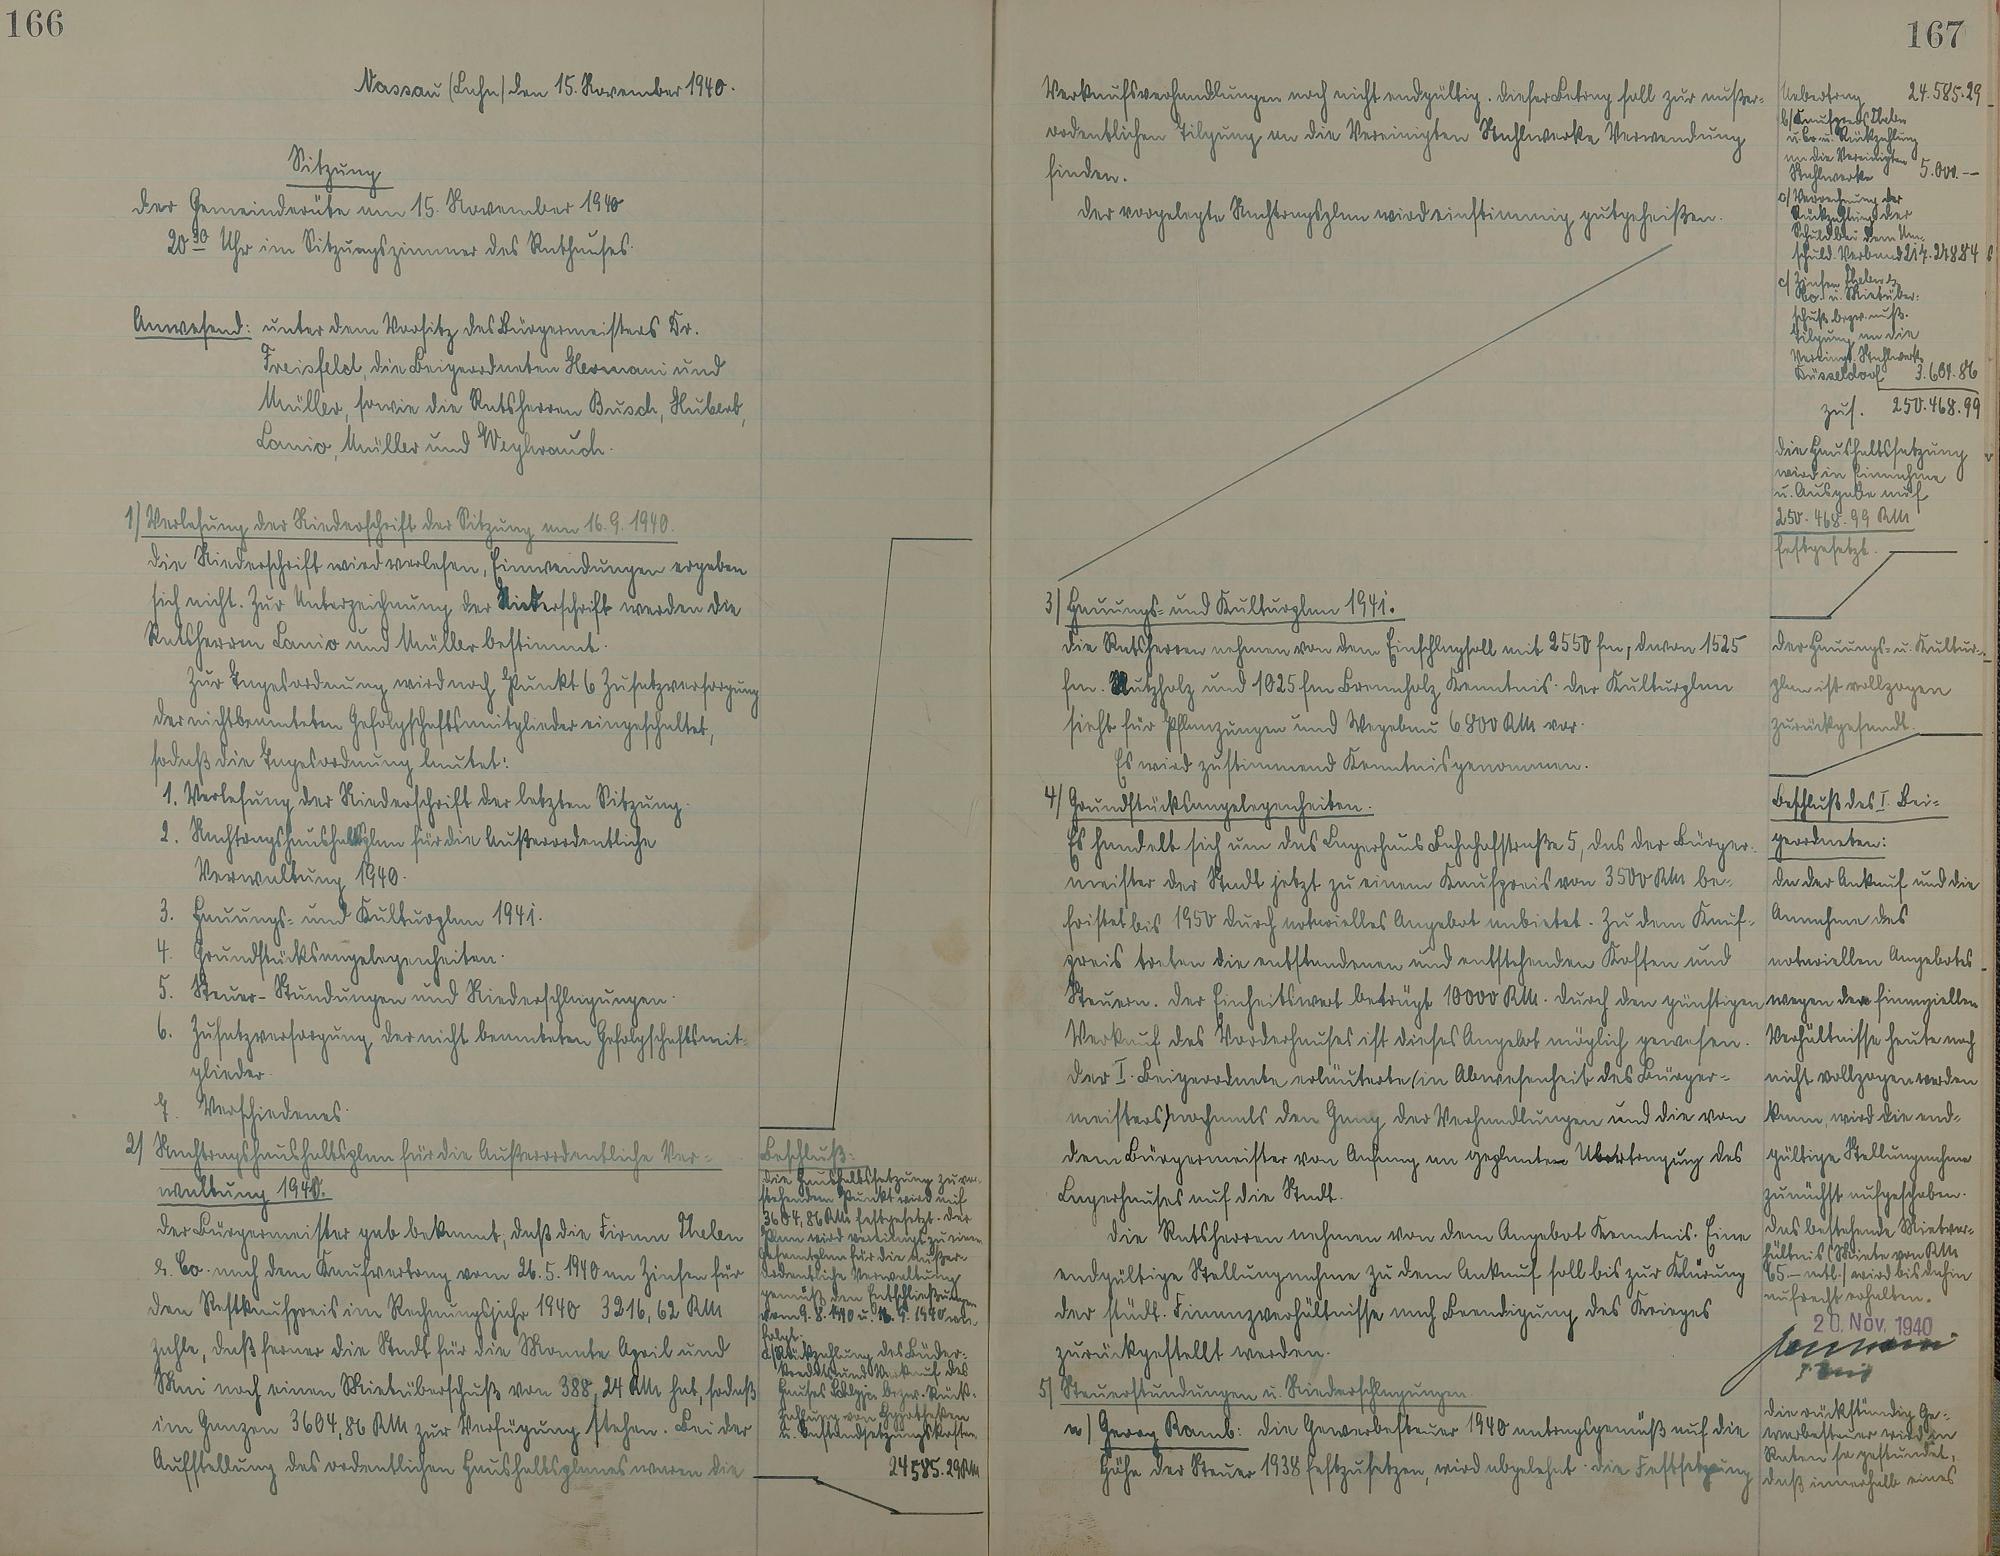 166
Nassau (Lahn) den 15. November 1940.
Sitzung
der Gemeinderäte am 15. November 1940
20 30 Uhr im Sitzungszimmer des Rathauses.
Anwesend: unter dem Vorsitz des Bürgermeisters Dr.
Freisfeld, die Beigeordneten Hermani und
Müller, sowie die Ratsherren Busch, Hubert,
Lanio, Müller und Weyhrauch.
1) Verlesung der Niederschrift der Sitzung am 16.9.1940.
Die Niederschrift wird verlesen, Einwendungen ergeben
sich nicht. Zur Unterzeichnung der Niederschrift werden die
Ratsherren Lanio und Müller bestimmt.
Zur Tagesordnung wird noch Punkt 6 Zusatzversorgung
der nichtbeamteten Gefolgschaftsmitglieder eingeschaltet,
sodaß die Tagesordnung lautet:
1. Verlesung der Niederschrift der letzten Sitzung.
2. Nachtragshaushaltsplan für die Außerordentliche
Verwaltung 1940.
3. Hauungs- und Kulturplan 1941.
4. Grundstücksangelegenheiten.
5. Steuer-Stundungen und Niederschlagungen.
6. Zusatzversorgung der nicht beamteten Gefolgschaftsmit-
glieder.
7. Verschiedenes.
2) Nachtragshaushaltsplan für die Außerordentliche Ver-
waltung 1940.
Der Bürgermeister gab bekannt, daß die Firma Thelen
& Co. nach dem Kaufvertrag vom 26.5.1940 an Zinsen für
den Restkaufpreis im Rechnungsjahr 1940 3216,62 RM
zahle, daß ferner die Stadt für die Monate April und
Mai noch einen Mietüberschuß von 388,24 RM hat, sodaß
im Ganzen 3604,86 RM zur Verfügung stehen. Bei der
Aufstellung des ordentlichen Haushaltsplanes waren die
Beschluß:
Die Haushaltssatzung zu vor-
stehendem Punkt wird auf
3604,86 RM festgesetzt. Der
Plan wird zu einem
Gesamtplan für die Außer-
ordentliche Verwaltung
gemäß den Entschließungen
vom 9.8.1940 u. 16.9.1940 wie
folgt:
a) Rückzahlung des Bäder-
kredits und Verkauf des
Hauses bezw. Rück-
zahlung von Hypotheken
u. Instandsetzungskosten
24585.29 RM
167
Verkaufsverhandlungen noch nicht endgültig. Dieser Betrag soll zur außer-
ordentlichen Tilgung an die Vereinigten Stahlwerke Verwendung
finden.
Der vorgelegte Nachtragsplan wird einstimmig gutgeheißen.
3) Hauungs- und Kulturplan 1941.
Die Ratsherren nehmen von dem Einschlagsoll mit 2550 fm, davon 1525
fm. Nutzholz und 1025 fm Brennholz Kenntnis. Der Kulturplan
sieht für Pflanzungen und Wegebau 6800 RM vor.
Es wird zustimmend Kenntnis genommen.
4) Grundstücksangelegenheiten.
Es handelt sich um das Lagerhaus Bahnhofstraße 5, das der Bürger-
meister der Stadt jetzt zu einem Kaufpreis von 3500 RM be-
fristet bis 1950 durch notarielles Angebot anbietet. Zu dem Kauf-
preis treten die entstandenen und entstehenden Kosten und
Steuern. Der Einheitswert beträgt 10000 RM. Durch den günstigen
Verkauf des Vorderhauses ist dieses Angebot möglich gewesen.
Der I. Beigeordnete erläuterte (in Abwesenheit des Bürger-
meisters) nochmals den Gang der Verhandlungen und die von
dem Bürgermeister von Anfang an geplante Übertragung des
Lagerhauses auf die Stadt.
Die Ratsherren nehmen von dem Angebot Kenntnis. Eine
endgültige Stellungnahme zu dem Ankauf soll bis zur Klärung
der städt. Finanzverhältnisse nach Beendigung des Krieges
zurückgestellt werden.
5) Steuerstundungen u. Niederschlagungen.
a) Georg Ramb: Die Gewerbesteuer 1940 antragsgemäß auf die
Höhe der Steuer 1938 festzusetzen, wird abgelehnt. Die Festsetzung
Uebertrag 24.585.29
b) Kaufpreis Thelen
u. Co. u. Rückzahlung
an die Vereinigten
Stahlwerke 5.000.--
c) Verrechnung der
Rückzahlung der
Schuld bei dem Um-
schuld. Verband 217.278.84
c) Zinsen Thelen &
Co. u. Mietüber-
schuß bezw. auß.
Tilgung an die
Vereinigt. Stahlwerke
Düsseldorf 3.604.86
zus. 250.468.99
Die Haushaltssatzung
wird in Einnahme
u. Ausgabe auf
250.468.99 RM
festgesetzt.
Der Hauungs- u. Kultur-
plan ist vollzogen
zurückgesandt.
Beschluß des I. Bei-
geordneten:
Da der Ankauf und die
Annahme des
notariellen Angebotes
wegen der finanziellen
Verhältnisse heute noch
nicht vollzogen werden
kann, wird die end-
gültige Stellungnahme
zunächst aufgeschoben.
Das bestehende Mietver-
hältnis (Miete von RM
65.— mtl.) wird bis dahin
aufrecht erhalten.
20. Nov. 1940
Hermani
Die rückständige Ge-
werbesteuer wird in
Raten so gestundet,
daß innerhalb eines